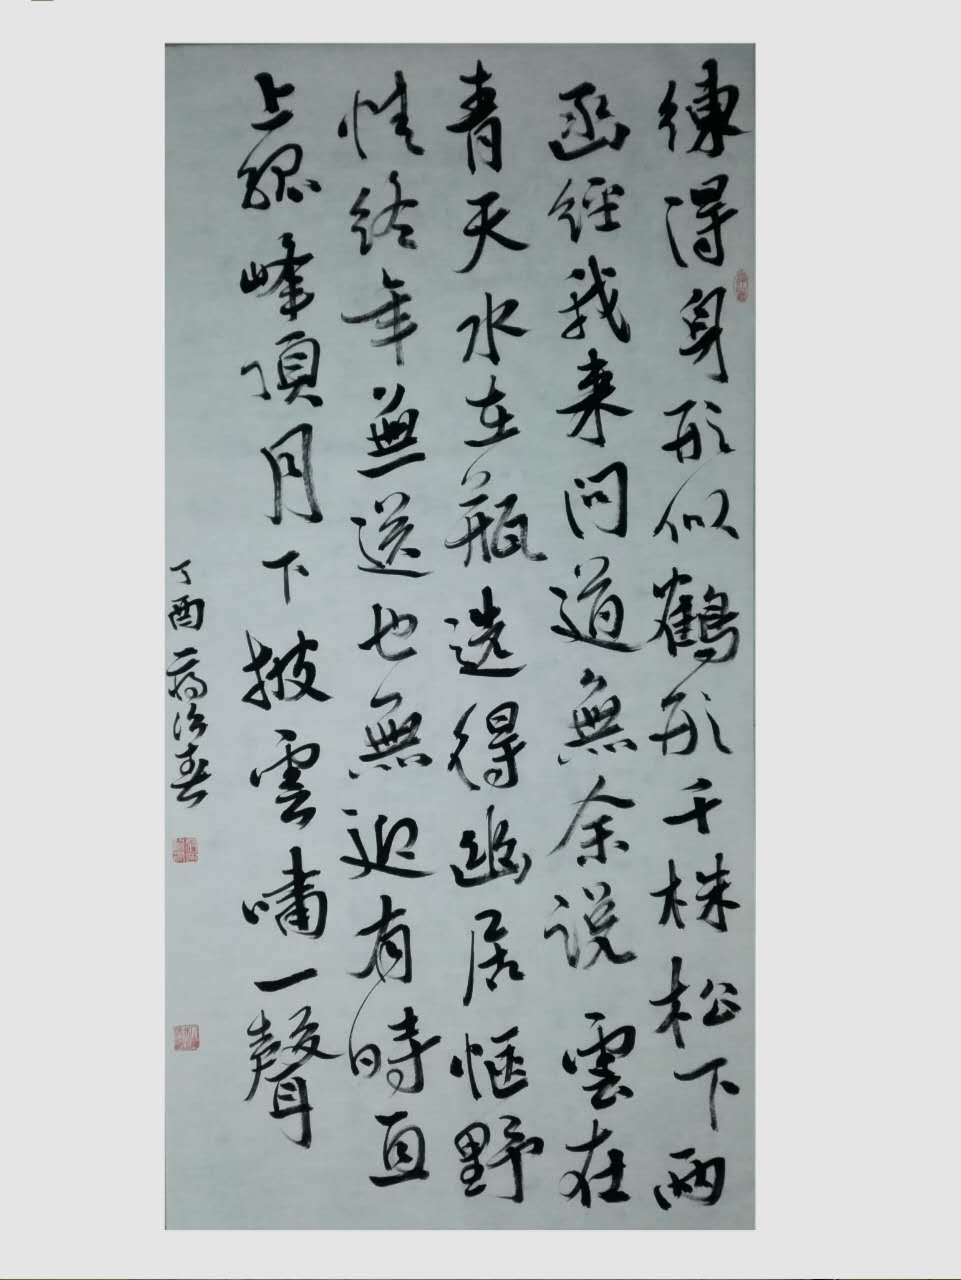 練得身形似鶴形千株松下兩
函經我来问道無余说雲在
青天水在瓶选得幽居惬野
性终年無送也無迎有時直
上孤峰顶月下披雲啸一聲
丁酉 蒋治春